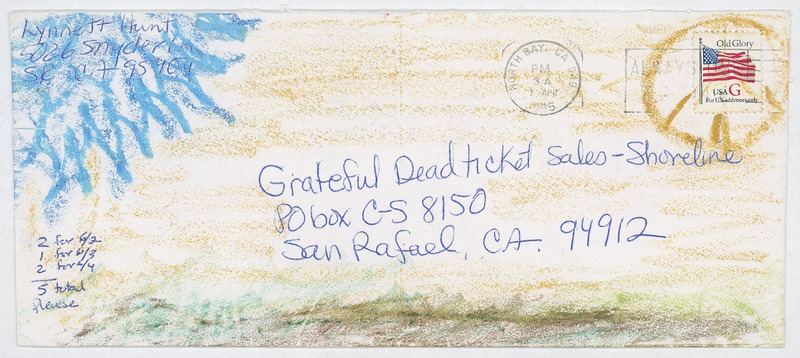 Lynnett Hunt
5026 Snyder Ln
95404
NORTH BAY, CA 949
PM
7 APR
Old Glory
USA G
For U.S. addresses only
Grateful Dead ticket Sales-Shoreline
PO box C-S 8150
San Rafael, CA. 94912
2 for 6/2
1 for 6/3
2 for 6/4
5 total
please